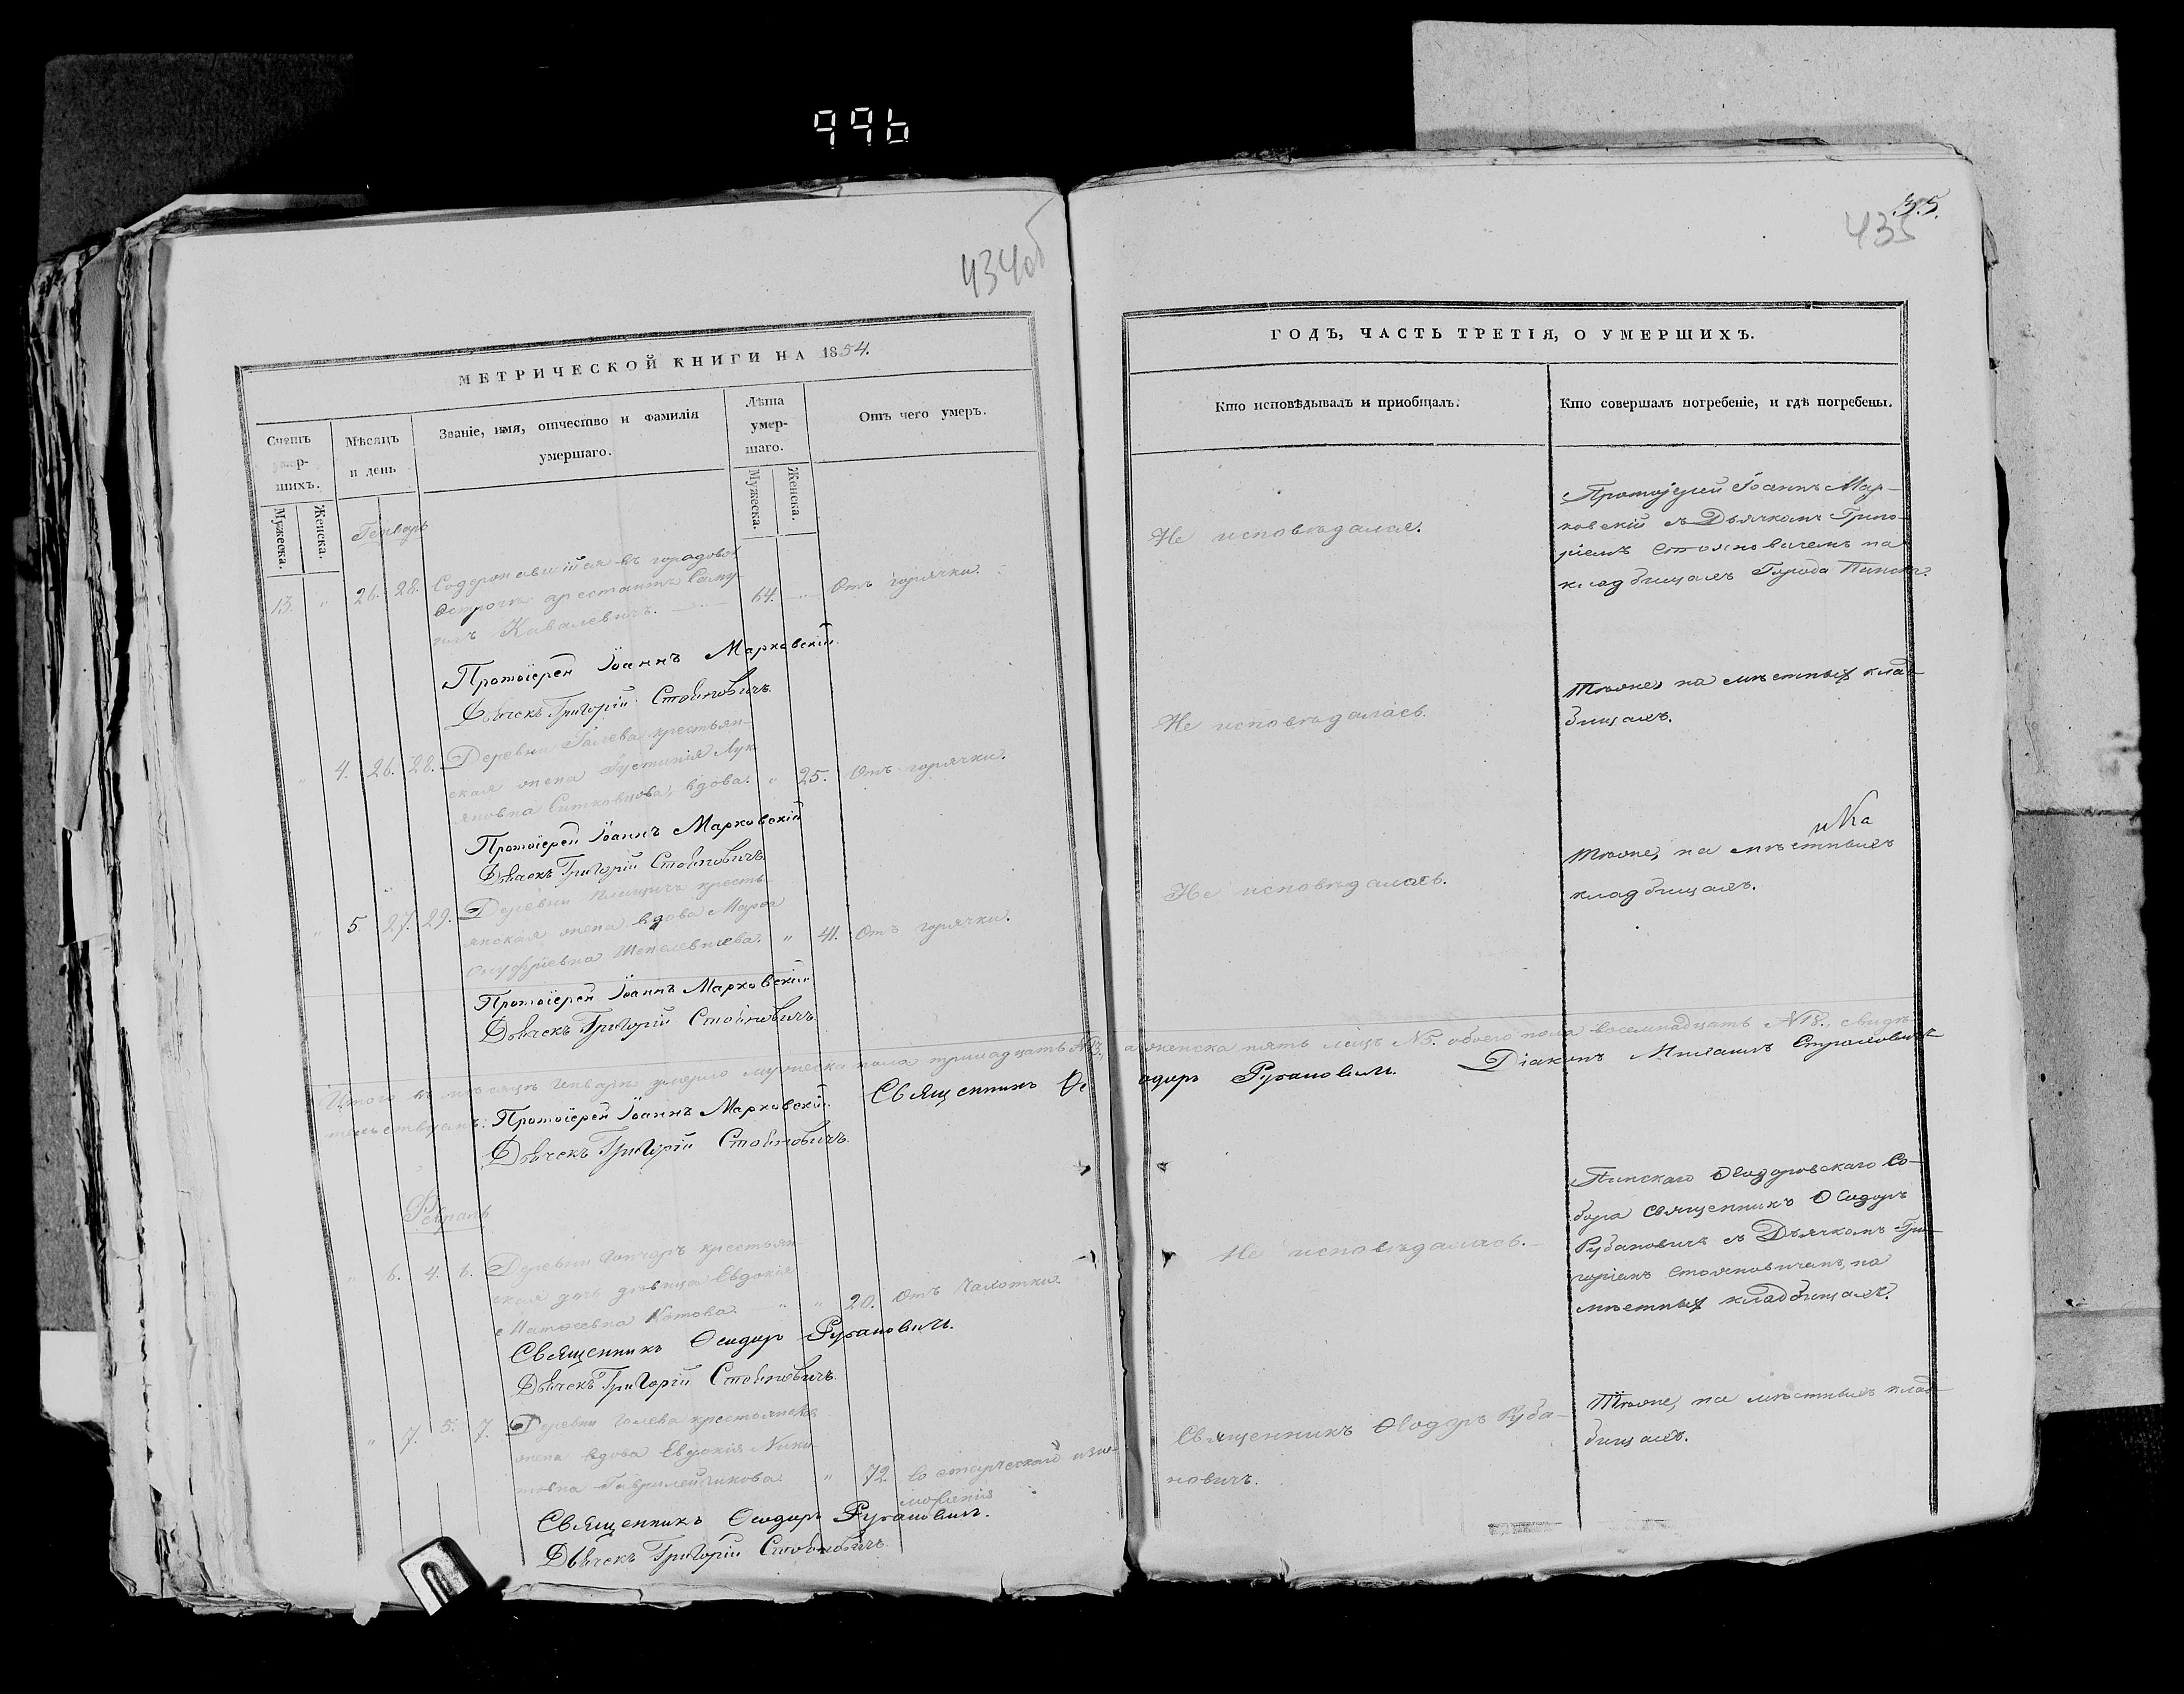 996
434об
МЕТРИЧЕСКОЙ КНИГИ НА 1854.
Счетъ умер-шихъ.
Мѣсяцъ и день
Званіе, имя, отчество и фамилія
умершаго.
Лѣта умер-шаго.
Отъ чего умеръ.
Мужеска.
Женска.
Мужеска.
Женска.
Генварь
13. " 26. 28. Содержавшійся въ городовой
Острогѣ арестантъ
Кавалевичъ. 64. " Отъ горячки.
Протоіерей Іоаннъ Марковскій.
Дьячекъ Григорій Стояновичъ.
" 4. 26. 28. Деревни Галева крестьян-
ская жена Іустинія Лук
яновна вдова. " 25. Отъ горячки.
Протоіерей Іоаннъ Марковскій
Дьячекъ Григорій Стояновичъ.
" 5 27. 29. Деревни кресть-
янская жена вдова
Онуфріевна Шепелевичева. " 41. Отъ горячки.
Протоіерей Іоаннъ Марковскій
Дьячекъ Григорій Стояновичъ.
Итого въ мѣсяцѣ Генварѣ умерло мужеска пола тринадцать №13., а женска пять лицъ №5. обоего пола восемнадцать №18., свидѣ-
тельствуемъ: Протоіерей Іоаннъ Марковскій. Священникъ Ѳеодоръ Рубановичъ. Діаконъ Михаилъ
Дьячекъ Григорій Стояновичъ.
Февраль
" 6. 4. 6. Деревни крестьян-
ская дочь дѣвица Евдокія
Котова. " 20. Отъ чахотки.
Священникъ Ѳеодоръ Рубановичъ.
Дьячекъ Григорій Стояновичъ.
" 7. 5. 7. Деревни Галева крестьянска
жена вдова Евдокія Ники
товна " 72. Въ старческомъ изне-
можения
Священникъ Ѳеодоръ Рубановичъ.
Дьячекъ Григорій Стояновичъ.
35.
435
ГОДЪ, ЧАСТЬ ТРЕТІЯ, О УМЕРШИХЪ.
Кто исповѣдывалъ и пріобщалъ.
Кто совершалъ погребеніе, и гдѣ погребены.
Не исповѣдался.
Протоіерей Іоаннъ Мар-
ковскій съ Дьячкомъ Григо-
ріемъ Стояновичемъ на
кладбищахъ Города Пинска.
Не исповѣдалась.
Тѣже, на мѣстныхъ клад-
бищахъ.
Не исповѣдалась.
Тѣже, на мѣстныхъ
кладбищахъ.
Не исповѣдалась.
Пинскаго Ѳеодоровскаго Со-
бора священникъ Ѳеодоръ
Рубановичъ съ Дьячкомъ Гри-
горіемъ Стояновичемъ, на
мѣстныхъ кладбищахъ.
Священникъ Ѳеодоръ Руба-
новичъ.
Тѣже, на мѣстныхъ клад-
бищахъ.